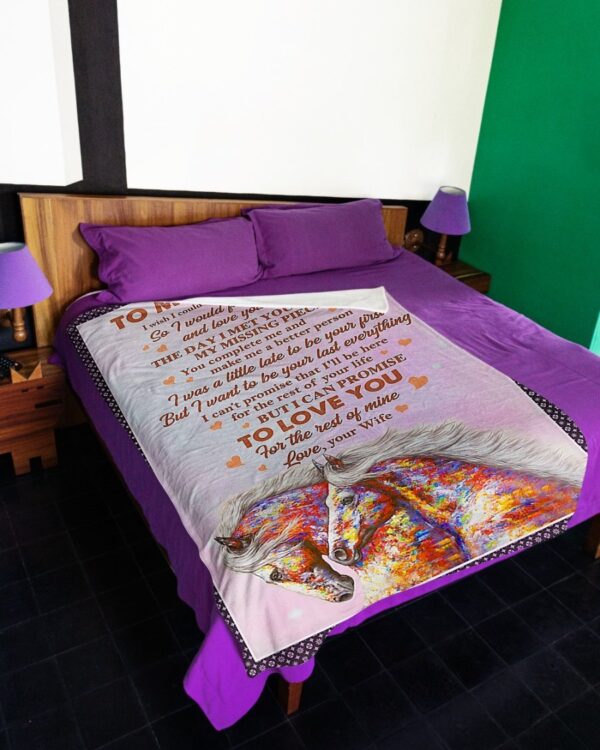 TO M
I wish I could
So I would f
and love you
THE DAY I MET YO
MY MISSING PIEC
You complete me and
make me a better person
I was a little late to be your first
But I want to be your last everything
I can't promise that I'll be here
for the rest of your life
BUT I CAN PROMISE
TO LOVE YOU
For the rest of mine
Love, your Wife